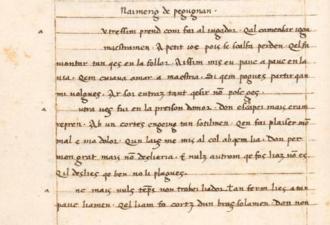 Naimeric de pegugnan.
tressim prend com fai al iugador. Qal comenbar ioga
maestramen. A petit ioc pois se scalfa perden. Qel fai
montar tan qes en la follor. Aissim mis eu pauc a pauc en la
uia. Qem cuiava amar a maestria. Si qem pogues partir qan
mi volgues. Ar soi entraz tant qeisir nō posc ges.
utra vez fui en la preison damor. Don escapei mais eram
repren. Ab un cortes engeing tan sotilmen. Qen fai plaiser mō
mal e ma dolor. Qun laig me mis al col abqem lia. Don per
mon grat mais nō desliaria. E nulz autrom qe fos liaz nō es.
Qil deslies qe ben no li plagues.
nc mais vulz temps non trobei liador. Tan ferm lies a tan
pauc liamen. Qel liam fo cortz dun bais solamen. Don non